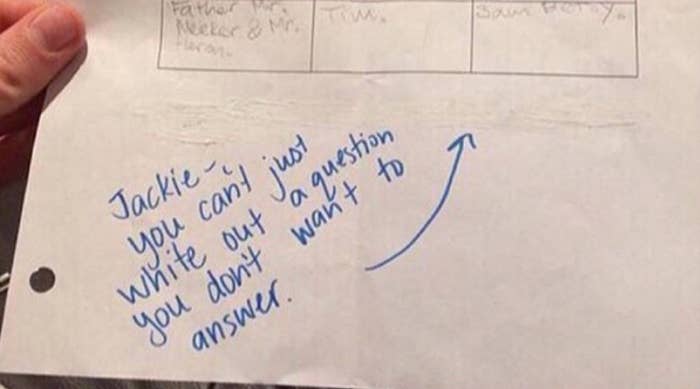 Father Mr.
Meeker & Mr.
Heron.
Tim.
Sam Betsy.
Jackie-
you can't just
white out a question
you don't want to
answer.